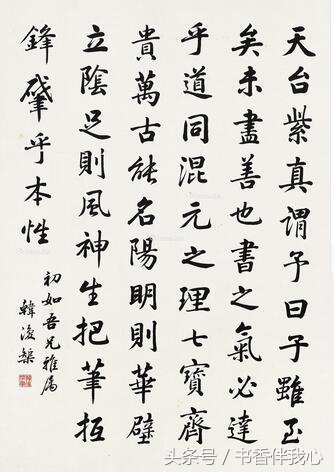 天台紫真謂予曰子雖至
矣未盡善也書之氣必達
乎道同混元之理七寶齊
貴萬古能名陽明則華壁
立陰足則風神生把筆抵
鋒肇乎本性
初如吾兄雅屬
韓復榘
头条号 / 书香伴我心